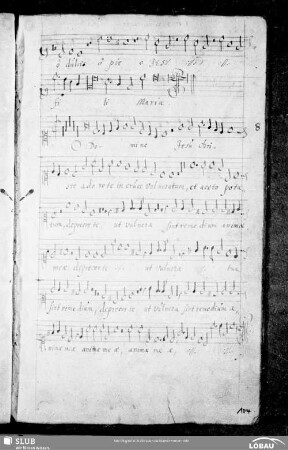 o dulcis o pie e Jesu
fi li Maria
8
O Do- mine Jesu Chri-
ste ado ro te in cruce vulneratum, et aceto pota
tum, deprecor te ut vulnera sint reme di um animae
meae deprecor te ut vulnera tua
sint reme dium, deprecor te ut vulnera sint remedium a
nimae meae animae meae, anima me ae,
104
SLUB
LÖBAU